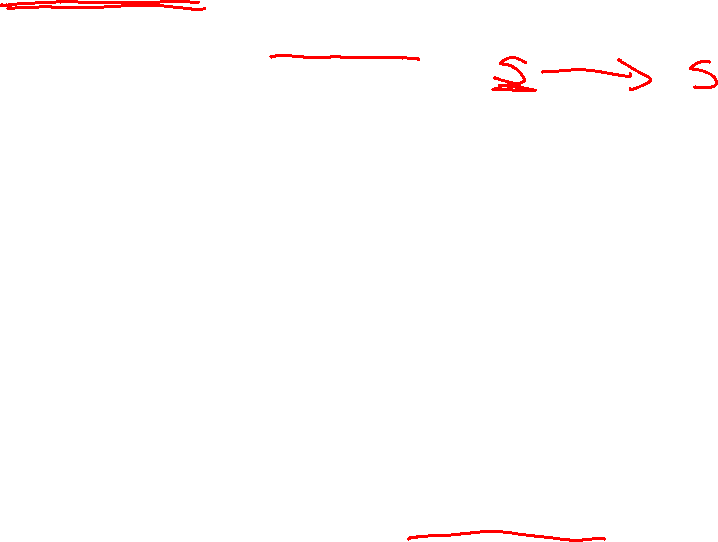 S → S